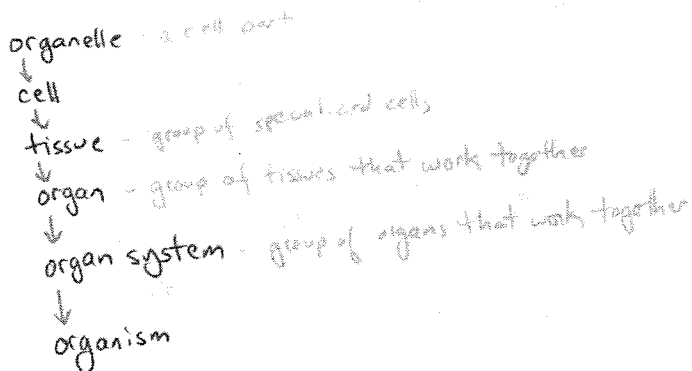 organelle - a cell part
cell
tissue - group of specialized cells
organ - group of tissues that work together
organ system - group of organs that work together
organism